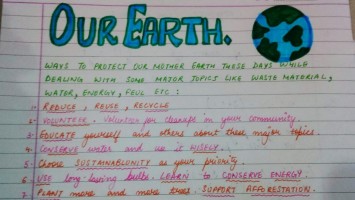 OUR EARTH.
WAYS TO PROTECT OUR MOTHER EARTH THESE DAYS WHILE
DEALING WITH SOME MAJOR TOPICS LIKE WASTE MATERIAL,
WATER, ENERGY, FEUL ETC :
1- REDUCE, REUSE, RECYCLE
2- VOLUNTEER. Volunteer for cleanups in your community.
3- EDUCATE yourself and others about these major topics.
4- CONSERVE water and use it WISELY.
5- Choose SUSTAINABLUNITY as your priority.
6- USE long-lasting bulbs. LEARN to CONSERVE ENERGY.
7- PLANT more and more trees. SUPPORT AFFORESTATION.